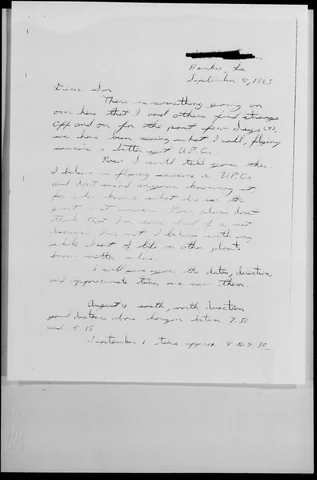 Bunkie, La
September 5, 1965
Dear Sir
There is something going on
over here that I and others find strange
Off and on for the past few days
we have been seeing what I call, flying
saucers or better yet U.F.Os.
Now I will tell you this
I believe in flying saucers or U.F.Os
and don't mind anyone knowing it,
for who knows what
please don't
think that I'm some kind of a nut
because I'm not I believe with my
whole heart of life on other planets
I will give you the date, direction,
and approximate times we saw them
August south, north direction
good distance above horizon between 7:50
and 8:15
September 1 time approx 8 to 8:30